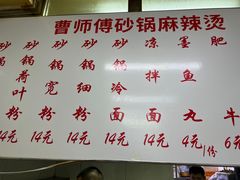 曹师傅砂锅麻辣烫
砂锅荷叶粉 14元
砂锅宽粉 14元
砂锅细粉 14元
砂锅冷面 14元
凉拌面 14元
墨鱼丸 4元/份
肥牛 6元